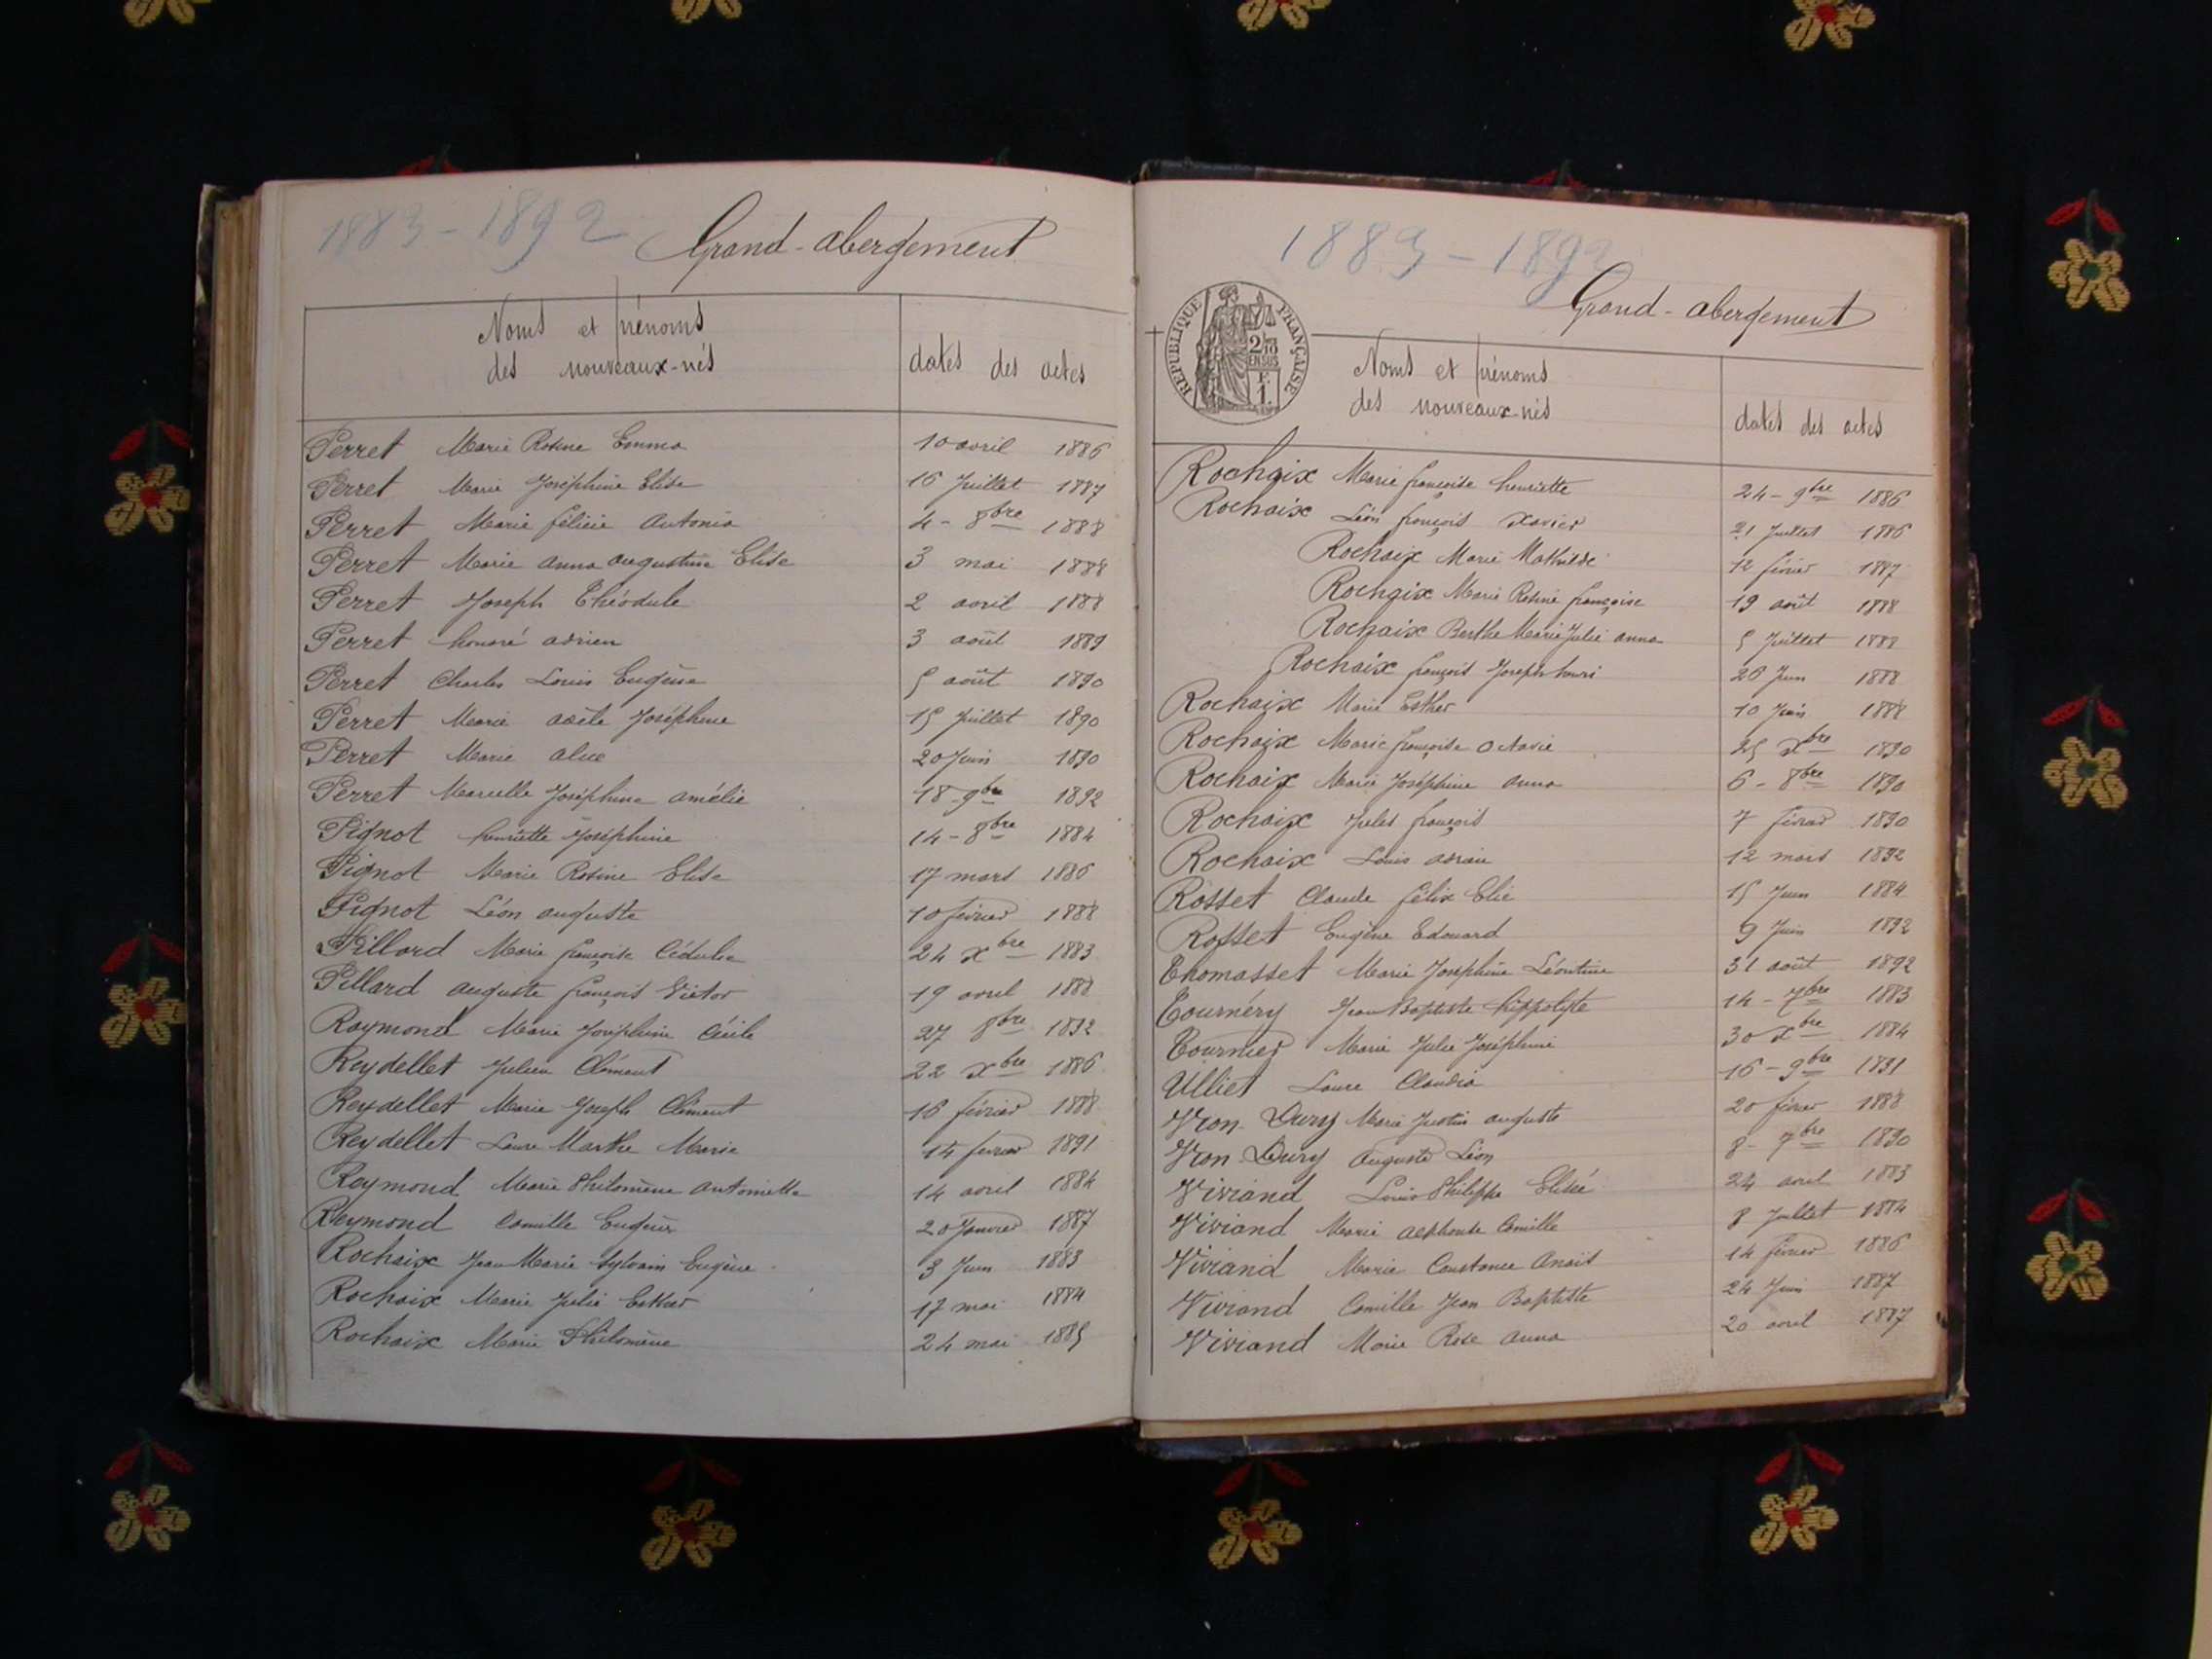 1883-1892 Grand-abergement
Noms et prénoms
des nouveaux-nés
dates des actes
Perret Marie Rosine Emma 10 avril 1886
Perret Marie Joséphine Elise 16 Juillet 1887
Perret Marie félicie Antonia 4-8bre 1888
Perret Marie anna augustine Elise 3 mai 1888
Perret Joseph Théodule 2 avril 1888
Perret honoré adrien 3 août 1889
Perret Charles Louis Eugène 5 août 1890
Perret Marie adèle Joséphine 15 Juillet 1890
Perret Marie alice 20 Juin 1890
Perret Marcelle Joséphine amélie 18-9bre 1892
Pignot henriette Joséphine 14-8bre 1884
Pignot Marie Rosine Elise 17 mars 1886
Pignot Léon auguste 10 février 1888
Pillard Marie françoise Cédulie 24 xbre 1883
Pillard auguste françois Victor 19 avril 1888
Raymond Marie Joséphine Cécile 27 8bre 1892
Reydellet Julien Clément 22 xbre 1886
Reydellet Marie Joseph Clément 16 février 1888
Reydellet Laure Marthe Marie 14 février 1891
Raymond Marie Philomène antoinette 14 avril 1884
Reymond Camille Eugène 20 Janvier 1887
Rochaix Jean Marie Sylvain Eugène 3 Juin 1883
Rochaix Marie Julie Esther 17 mai 1884
Rochaix Marie Philomène 24 mai 1885
1883-1892
Grand-abergement
REPUBLIQUE FRANÇAISE
2/10
EN SUS
F.
1.
Noms et prénoms
des nouveaux-nés
dates des actes
Rochaix Marie françoise henriette 24-9bre 1886
Rochaix Léon françois Xavier 21 Juillet 1886
Rochaix Marie Mathilde 12 février 1887
Rochaix Marie Rosine françoise 19 août 1888
Rochaix Berthe Marie Julie anna 5 Juillet 1888
Rochaix françois Joseph henri 26 Juin 1888
Rochaix Marie Esther 10 Juin 1888
Rochaix Marie françoise Octavie 25 xbre 1890
Rochaix Marie Joséphine anna 6-8bre 1890
Rochaix Jules françois 7 février 1890
Rochaix Louis adrien 12 mars 1892
Rosset Claude félix Elie 15 Juin 1884
Rosset Eugène Edouard 9 Juin 1892
Thomasset Marie Joséphine Léontine 31 août 1892
Tournéry Jean Baptiste hippolyte 14-7bre 1883
Tournier Marie Julie Joséphine 30 xbre 1884
Ulliet Laure Claudia 16-9bre 1891
Vron-Dury Marie Justin auguste 20 février 1888
Vron-Dury Auguste Léon 8-7bre 1890
Viviand Louis Philippe Elisé 24 avril 1883
Viviand Marie alphonse Camille 8 Juillet 1884
Viviand Marie Constance Anaïs 14 février 1886
Viviand Camille Jean Baptiste 24 Juin 1887
Viviand Marie Rose anna 20 avril 1887